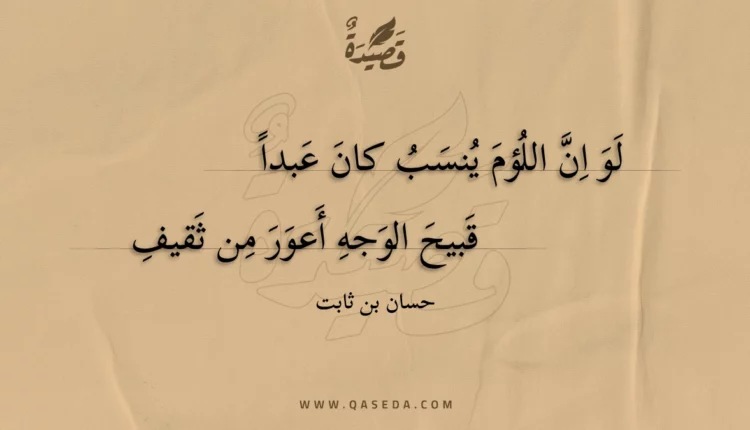 قَصِيدَةٌ
لَوَ اِنَّ اللُؤمَ يُنسَبُ كانَ عَبداً
قَبيحَ الوَجهِ أَعوَرَ مِن ثَقيفِ
حسان بن ثابت
WWW.QASEDA.COM